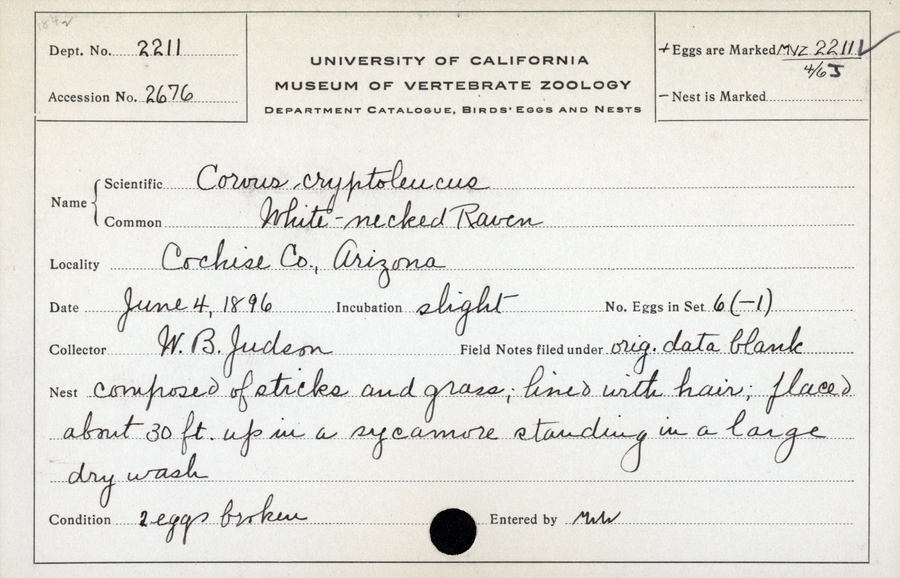 1842
Dept. No. 2211
Accession No. 2676
UNIVERSITY OF CALIFORNIA
MUSEUM OF VERTEBRATE ZOOLOGY
DEPARTMENT CATALOGUE, BIRDS' EGGS AND NESTS
+ Eggs are Marked MVZ 2211
4/6
— Nest is Marked
Name
Scientific Corvus cryptoleucus
Common White-necked Raven
Locality Cochise Co., Arizona
Date June 4, 1896 Incubation slight No. Eggs in Set 6 (−1)
Collector W. B. Judson Field Notes filed under orig. data blank
Nest composed of sticks and grass; lined with hair; placed
about 30 ft. up in a sycamore standing in a large
dry wash
Condition 2 eggs broken Entered by